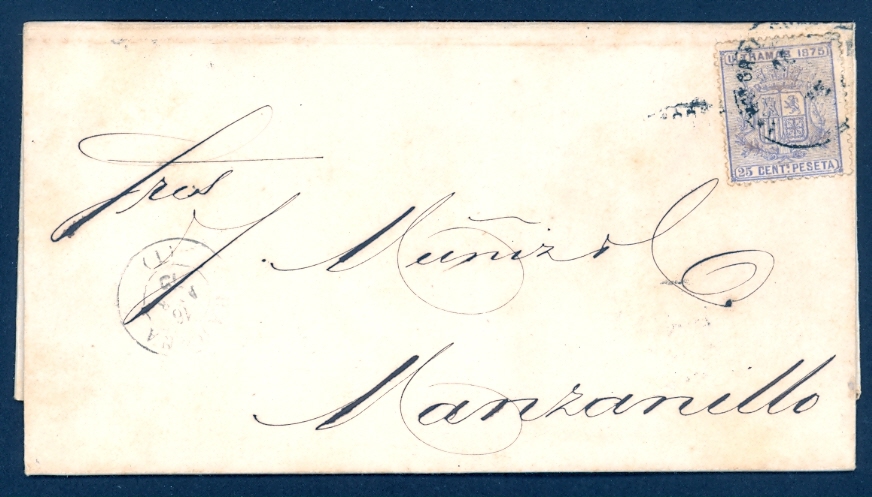 ULTRAMAR 1875
25 CENT.s PESETA
Sres
J. Muñiz y C.
Manzanillo